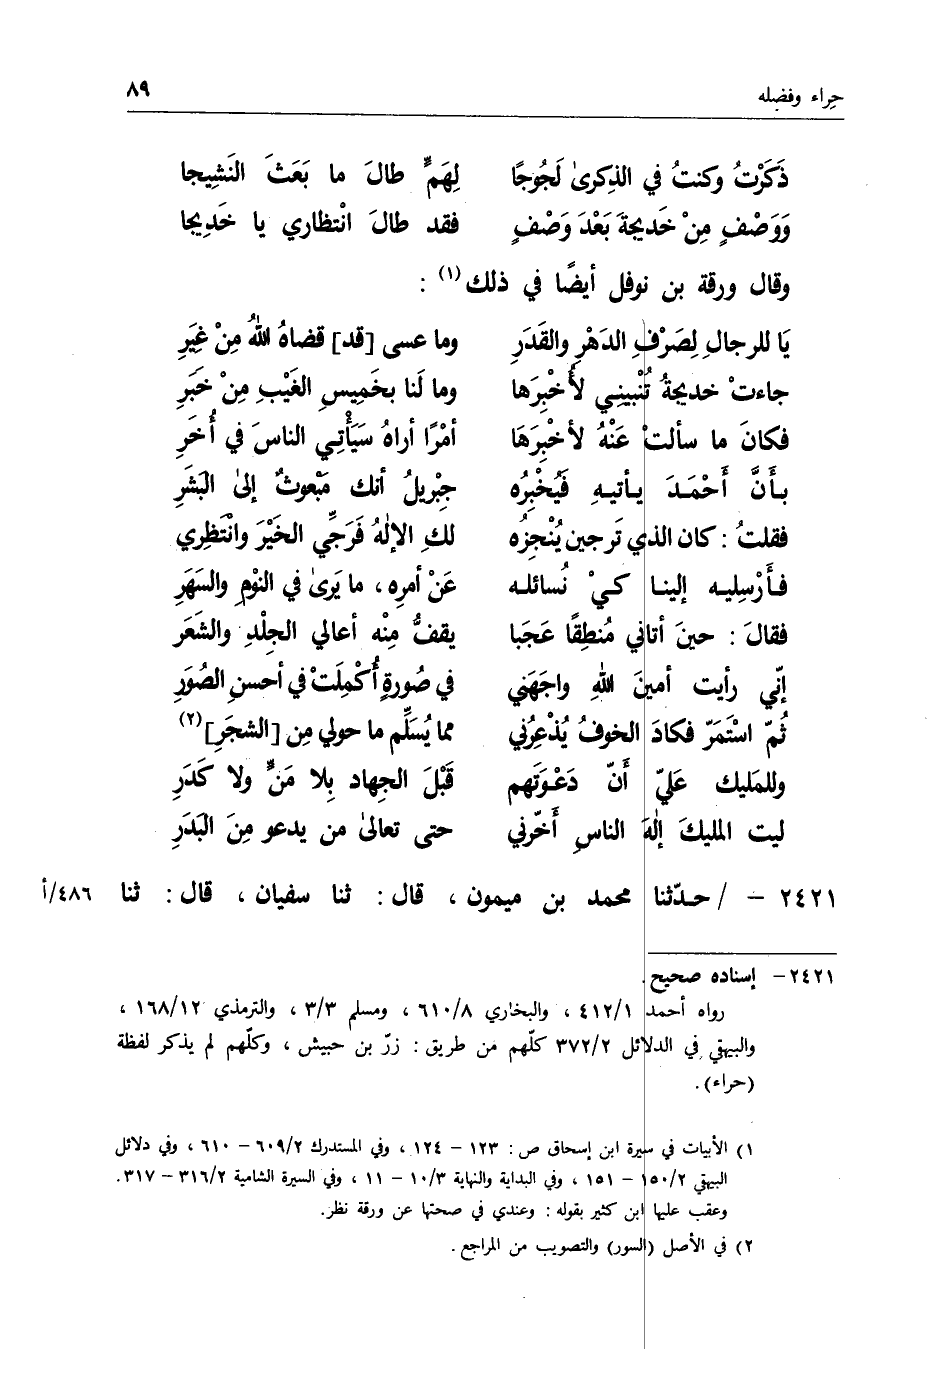 حِراء وفضله ٨٩
ذَكَرْتُ وكنتُ في الذِكرىٰ لَجُوجًا لِهَمٍّ طالَ ما بَعَثَ النَشِيجا
وَوَصْفٍ مِنْ خَديجةَ بَعْدَ وَصْفٍ فقد طالَ انْتظاري يا خَدِيجا
وقال ورقة بن نوفل أيضًا في ذلك(١) :
يَا للرجالِ لِصَرْفِ الدَهْرِ والقَدَرِ وما عسى [قد] قضاهُ اللهُ مِنْ غِيَرِ
جاءتْ خديجةُ تُنْبينِي لأُخْبِرَها وما لَنا بخَمِيسِ الغَيْبِ مِنْ خَبَرِ
فكانَ ما سألتْ عَنْهُ لأخْبِرَهَا أمْرًا أراهُ سَيَأْتِي الناسَ في أُخَرِ
بأَنَّ أَحْمَدَ يأتيهِ فَيُخْبِرُه جِبْريلُ أنك مَبْعوثٌ إلىٰ البَشَرِ
فقلتُ : كان الذي تَرجين يُنْجِزُه لكِ الإلٰهُ فَرَجِّي الخَيْرَ وانْتَظِري
فأَرْسليه إلينا كيْ نُسائله عَنْ أمرِه ، ما يَرىٰ في النوْمِ والسَهَرِ
فقالَ : حينَ أتاني مُنطِقًا عَجَبا يقفُّ مِنْه أعالي الجِلْدِ والشَعَر
إنّي رأيت أمينَ اللهِ واجَهَني في صُورةٍ أُكْمِلَتْ في أحسنِ الصُوَرِ
ثُمّ اسْتَمَرّ فكادَ الخوفُ يُذْعِرُني مما يُسَلِّم ما حولي مِن [الشجَرِ](٢)
وللمَليك عَليّ أَنّ دَعْوَتَهم قَبْلَ الجِهاد بِلا مَنٍّ ولا كَدَرِ
ليت المليكَ إلٰهَ الناسِ أَخّرني حتى تعالىٰ من يدعو مِنَ البَدَرِ
٢٤٢١ – / حدّثنا محمد بن ميمون ، قال : ثنا سفيان ، قال : ثنا ٤٨٦/أ
٢٤٢١– إسناده صحيح.
رواه أحمد ٤١٢/١ ، والبخاري ٦١٠/٨ ، ومسلم ٣/٣ ، والترمذي ١٦٨/١٢ ،
والبيهقي في الدلائل ٣٧٢/٢ كلّهم من طريق : زرّ بن حبيش ، وكلّهم لم يذكر لفظة
(حراء).
١) الأبيات في سيرة ابن إسحاق ص : ١٢٣ – ١٢٤ ، وفي المستدرك ٦٠٩/٢ – ٦١٠ ، وفي دلائل
البيهقي ١٥٠/٢ – ١٥١ ، وفي البداية والنهاية ١٠/٣ – ١١ ، وفي السيرة الشامية ٣١٦/٢ – ٣١٧.
وعقب عليها ابن كثير بقوله : وعندي في صحتها عن ورقة نظر.
٢) في الأصل (السور) والتصويب من المراجع .